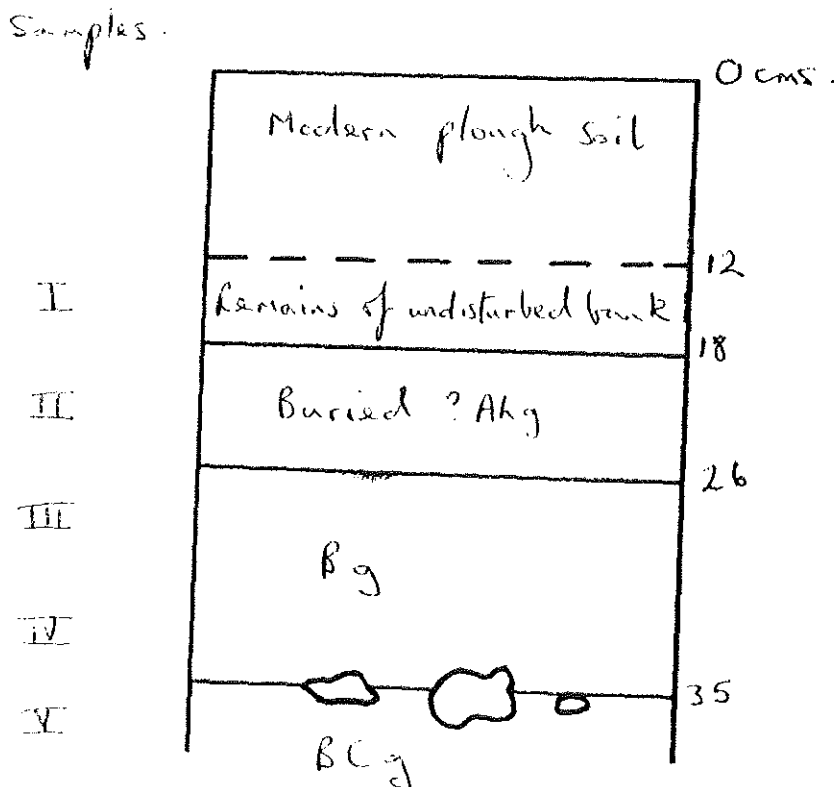 Samples.
0 cms.
Modern plough soil
12
I
Remains of undisturbed bank
18
II
Buried ? Ahg
26
III
Bg
IV
35
V
BCg